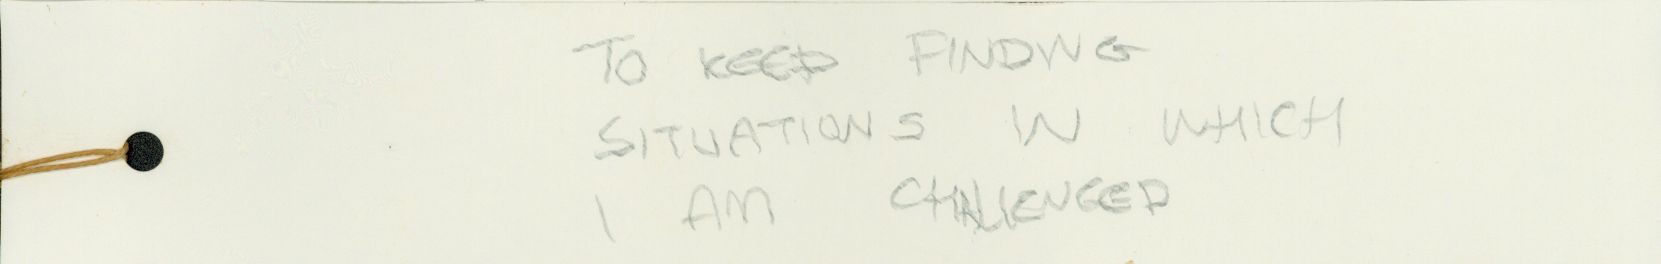 TO KEEP FINDING
SITUATIONS IN WHICH
I AM CHALLENGED